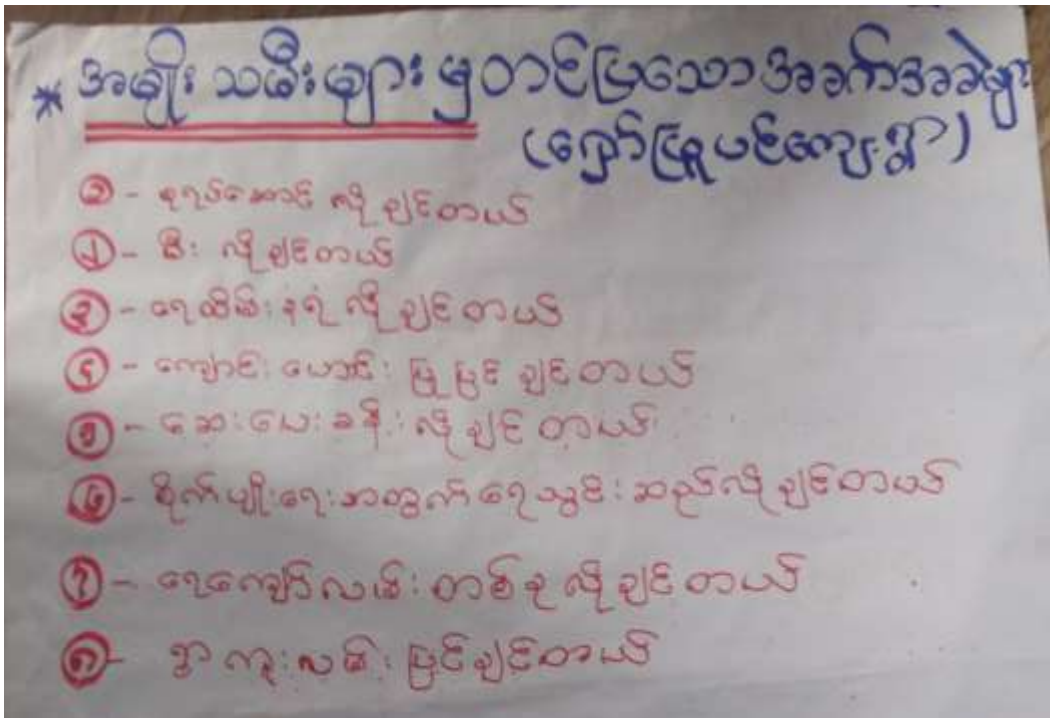 * အမျိုးသမီးများမှတင်ပြသောအခက်အခဲများ
(လျှော်ဖြူပင်ကျေးရွာ)
၁ - စုရပ်ဆောင် လိုချင်တယ်
၂ - မီး လိုချင်တယ်
၃ - ရေထိမ်းနံရံ လိုချင်တယ်
၄ - ကျောင်းဟောင်း ပြုပြင်ချင်တယ်
၅ - ဆေးပေးခန်း လိုချင်တယ်
၆ - စိုက်ပျိုးရေးအတွက် ရေသွင်းဆည်လိုချင်တယ်
၇ - ရေကျော်လမ်း တစ်ခု လိုချင်တယ်
၈ - ရွာကူးလမ်း ပြင်ချင်တယ်